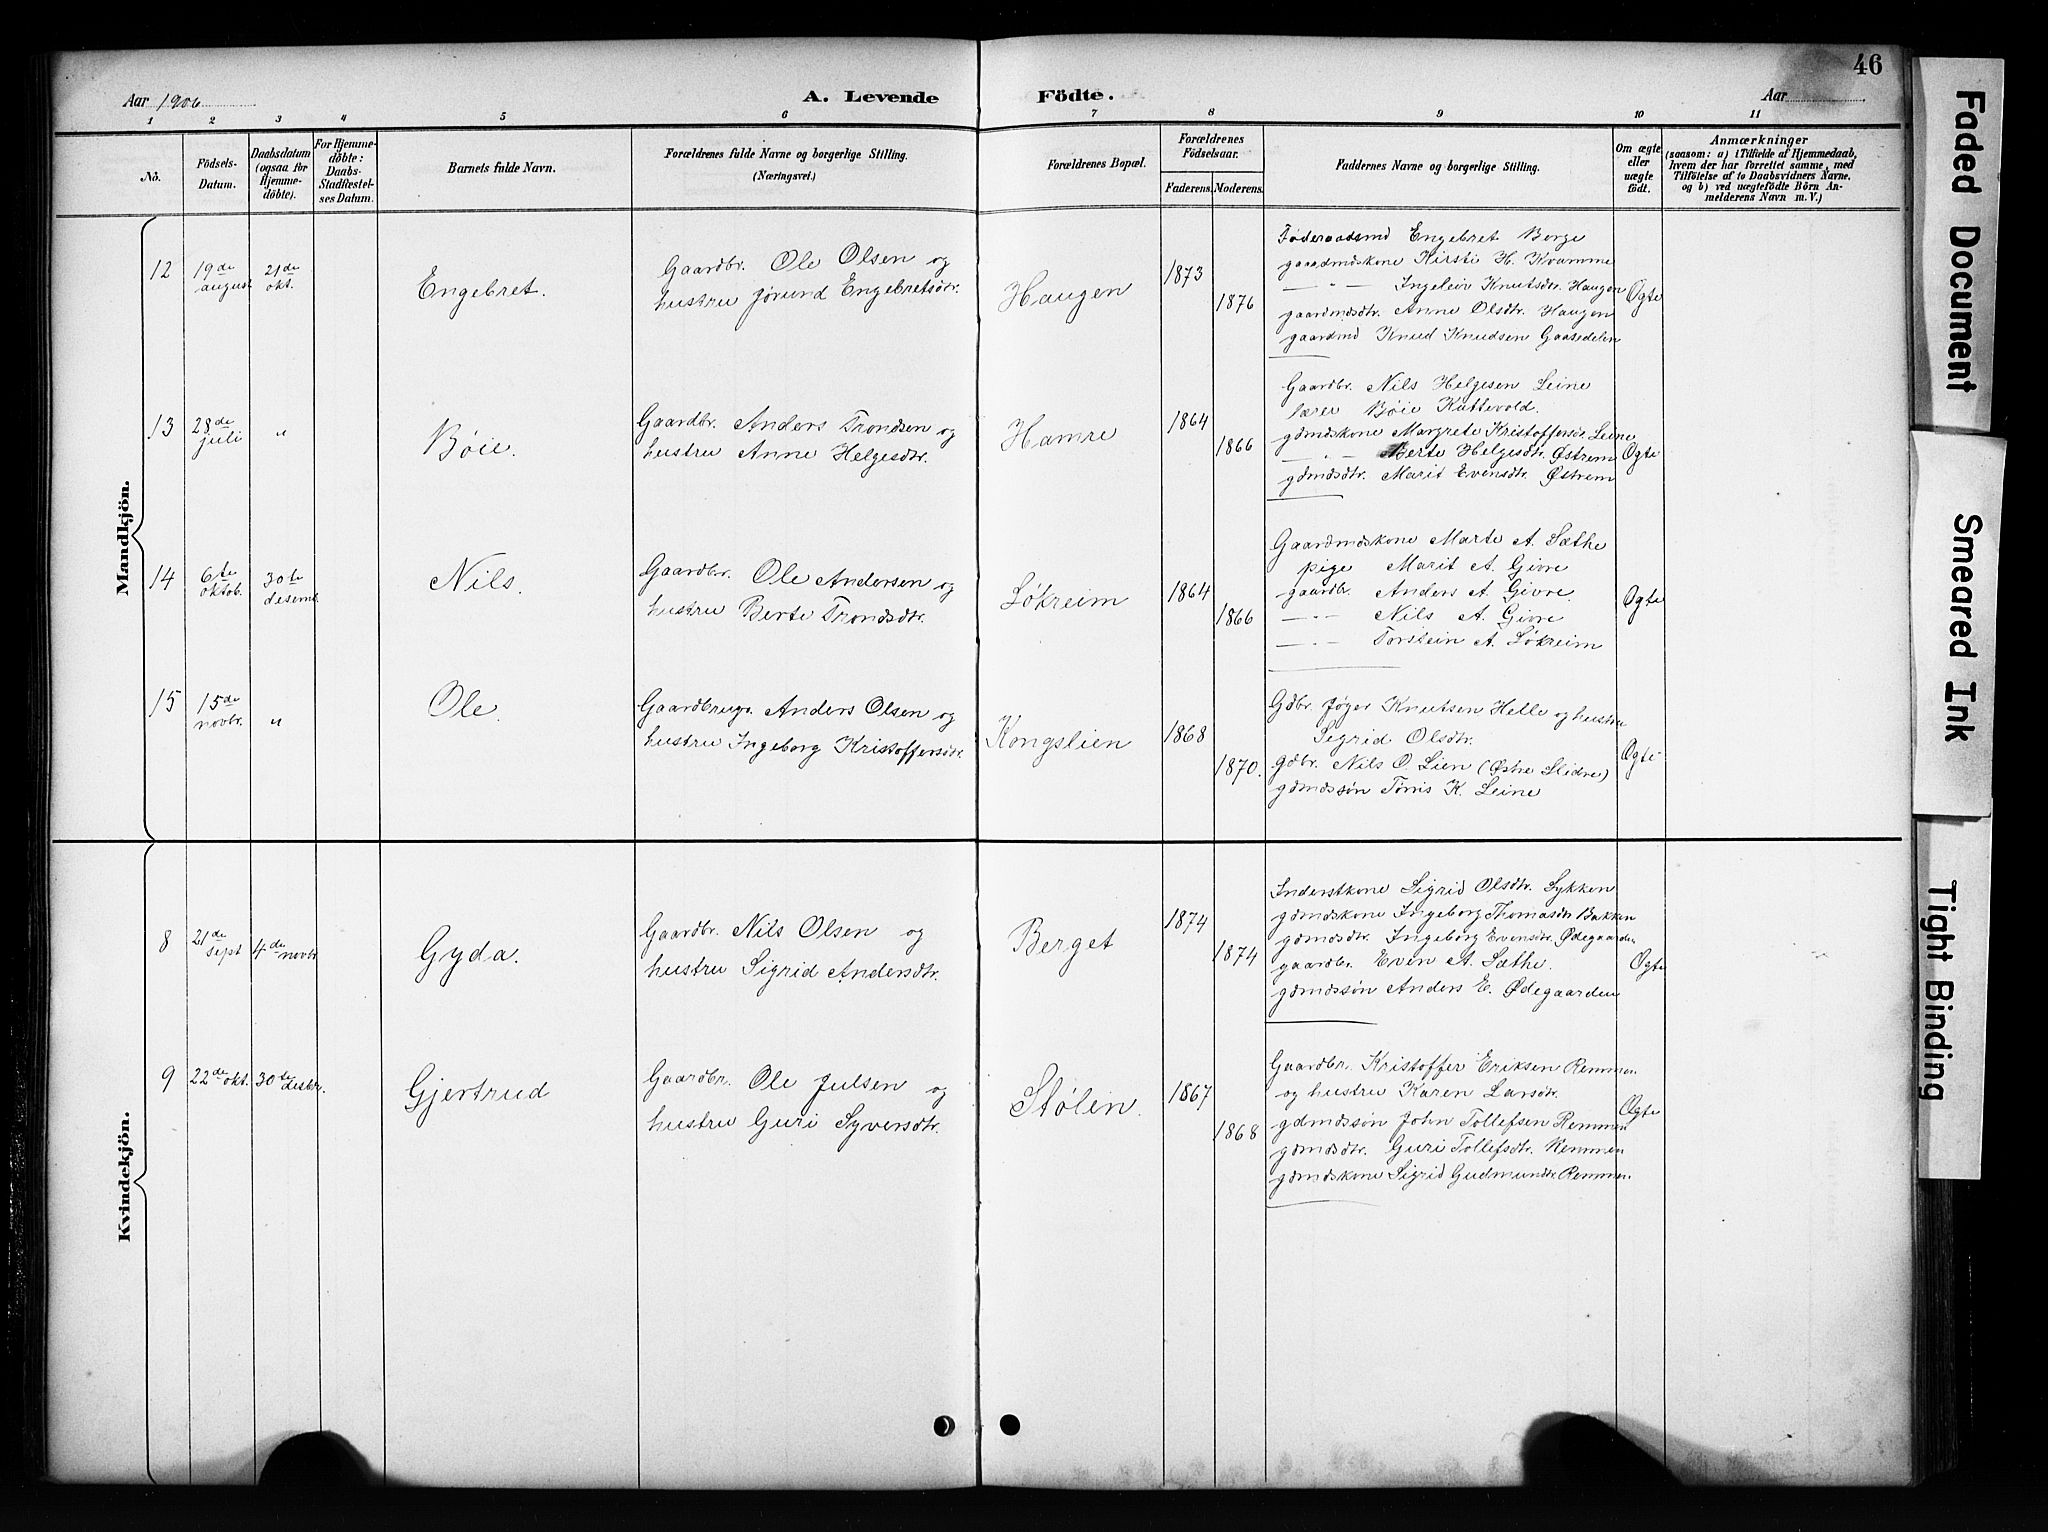 46
Aar 1906
A. Levende Födte.
Aar
1 2 3 4 5 6 7 8 9 10 11
No.
Födsels-Datum.
Daabsdatum (ogsaa for Hjemme-döbte).
For Hjemme-döbte: Daabs-Stadfæstel-ses Datum.
Barnets fulde Navn.
Forældrenes fulde Navne og borgerlige Stilling. (Næringsvei.)
Forældrenes Bopæl.
Forældrenes Födselsaar.
Faderens. Moderens.
Faddernes Navne og borgerlige Stilling.
Om ægte eller uægte födt.
Anmærkninger
(saasom: a) i Tilfælde af Hjemmedaab,
hvem der har forrettet samme, med
Tilföielse af to Daabsvidners Navne,
og b) ved uægtefödte Börn An-
melderens Navn m. V.)
Mandkjön.
12
19de august
21de okt.
Engebret.
Gaardbr. Ole Olsen og
hustru Jørund Engebretsdtr.
Haugen
1873
1876
Føderaadsmd Engebret Berge
gaardmdskone Kirsti H. Kvamme
— " — Ingeleiv Knutsdtr. Haugen
gaardmdsdtr. Anne Olsdtr. Haugen
gaardmd Knud Knudsen Gaasedelen
Øgte
13
28de juli
"
Bøie.
Gaardbr. Anders Trondsen og
hustru Anne Helgesdtr.
Hamre
1864
1866
Gaardbr. Nils Helgesen Leine
lærer Bøie Kattevold.
gdmdskone Margrete Kristoffersdr. Leine
— " — Berte Helgesdtr. Østrem
gdmdsdtr. Marit Evensdtr. Østrem
Øgte
14
6te oktob.
30te desemb.
Nils.
Gaardbr. Ole Andersen og
hustru Berte Trondsdtr.
Løkreim
1864
1866
Gaardmdskone Marte A. Sæthe
pige Marit A. Givre
gaardbr. Anders A. Givre.
— " — Nils A. Givre
— " — Torstein A. Løkreim
Øgte
15
15de novbr.
"
Ole.
Gaardbrug. Anders Olsen og
hustru Ingeborg Kristoffersdtr.
Kongslien
1868
1870.
Gdbr. Jøger Knutsen Helle og hustru
Sigrid Olsdtr.
gdbr. Nils O. Lien (Østre Slidre)
gdmdssøn Tøris K. Leine
Øgte
Kvindekjön.
8
21de sept
4de novbr
Gyda.
Gaardbr. Nils Olsen og
hustru Sigrid Andersdtr.
Berget
1874
1874
Inderstkone Sigrid Olsdtr. Lykken
gdmdskone Ingeborg Thomasdtr Bakken
gdmdsdtr. Ingeborg Evensdtr. Ødegaarden
gaardbr. Even A. Sæthe.
gdmdssøn Anders E. Ødegaarden
Øgte
9
22de okt.
30te desbr.
Gjertrud
Gaardbr. Ole Julsen og
hustru Guri Syversdtr.
Stølen.
1867
1868
Gaardbr. Kristoffer Eriksen Remmen
og hustru Karen Larsdtr.
gdmdssøn John Tollefsen Remmen
gdmdsdtr. Guri Tollefsdtr. Remmen
gdmdskone Sigrid Gudmundsdr. Remmen.
Øgte
Faded Document
Smeared Ink
Tight Binding